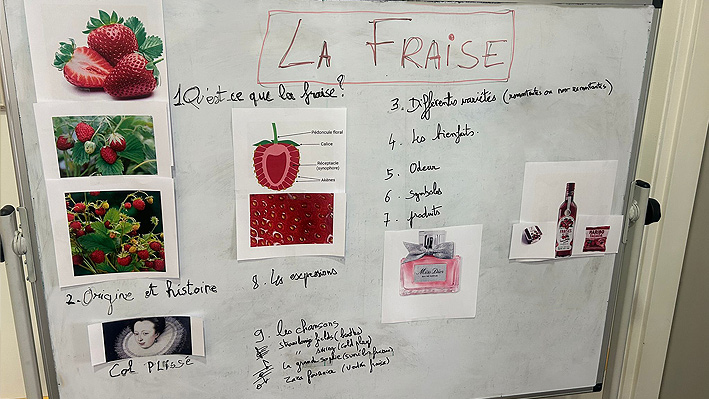 LA FRAISE
1 Qu'est-ce que la fraise?
Pédoncule floral
Calice
Réceptacle
(synophore)
Akènes
2. Origine et histoire
Col PLISSÉ
3. Différentes variétés (remontantes ou non remontantes)
4 Les bienfaits.
5. Odeur
6 symboles
7. produits
Miss Dior
HARIBO
8. Les expressions
9. les chansons
strawberry fields (beatles)
" swing (cold play)
La grande sophie (
Zaza fournier (vodka fraise)